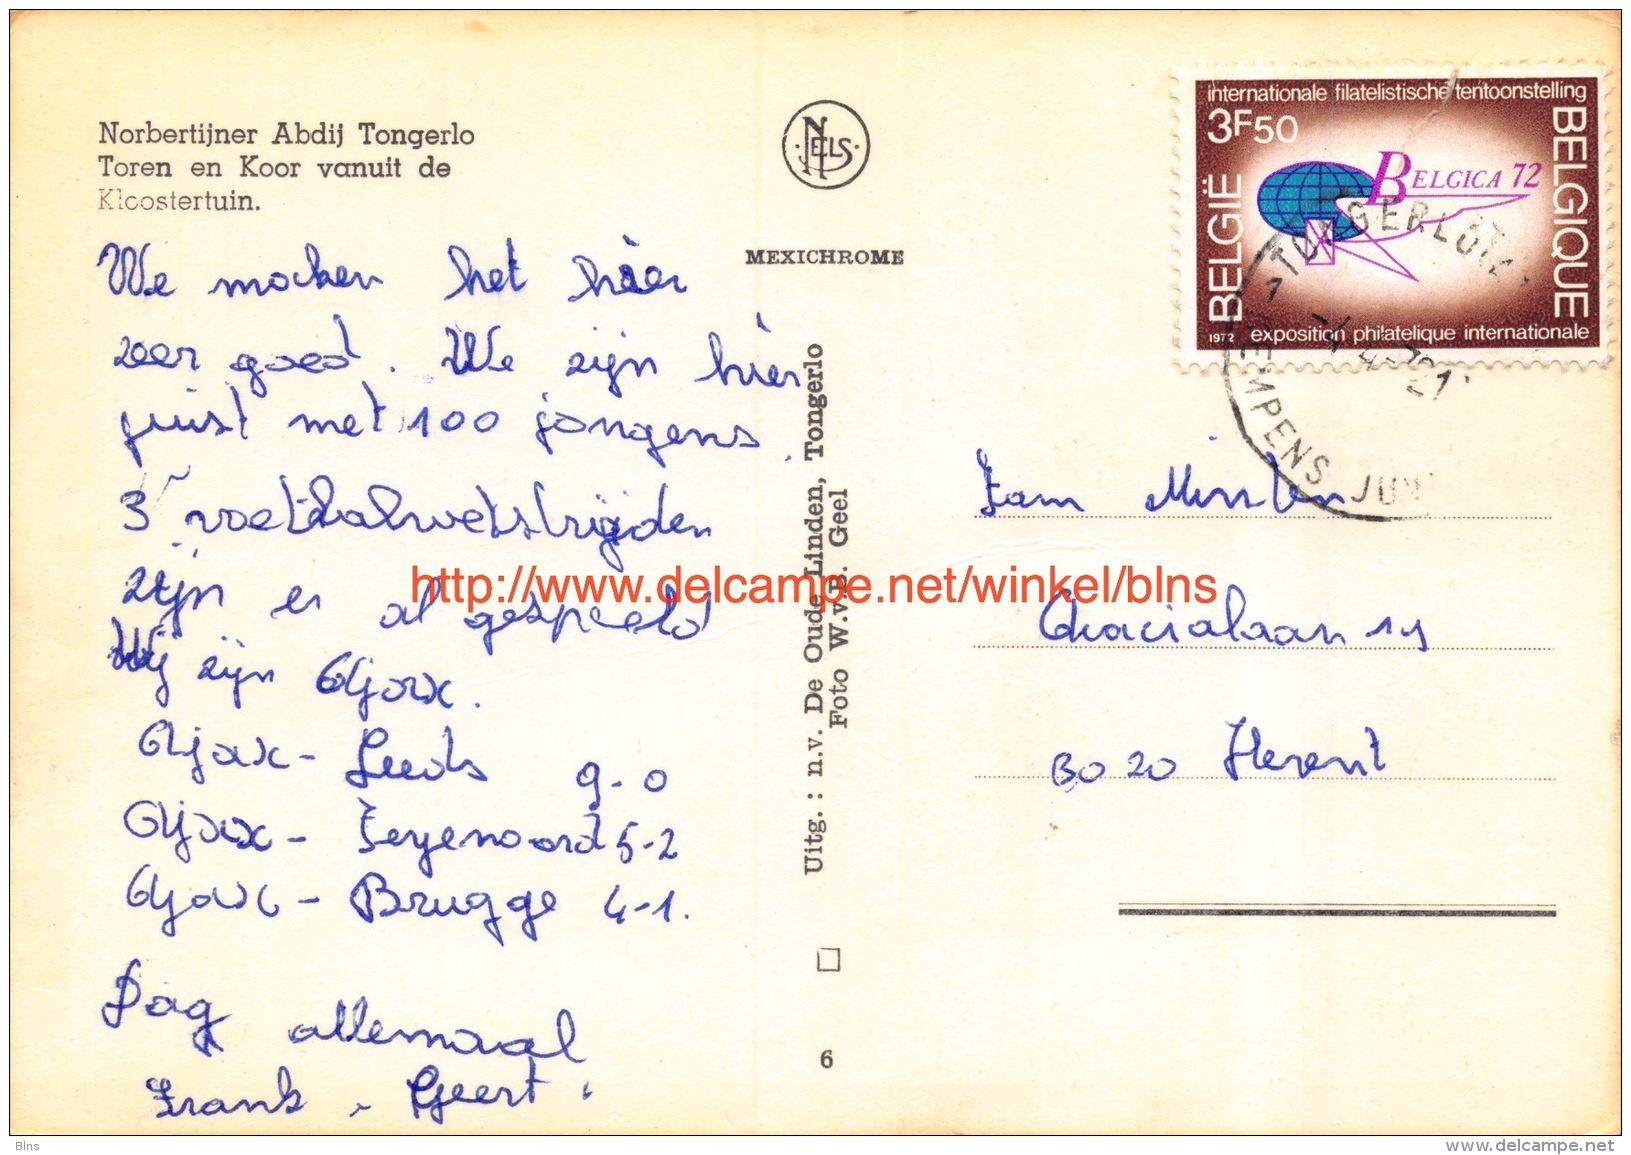 Norbertijner Abdij Tongerlo
Toren en Koor vanuit de
Kloostertuin.
NELS
MEXICHROME
We maken het hier
zeer goed. We zijn hier
juist met 100 jongens.
3 voetbalwetstrijden
zijn er al gespeeld
Wij zijn Ajax.
Ajax - Leeds 9-0
Ajax - Feyenoord 5-2
Ajax - Brugge 4-1.
Dag allemaal
Frank - Geert.
Uitg. : n.v. De Oude Linden, Tongerlo
Foto W.v.B. Geel
6
internationale filatelistische tentoonstelling
3F50
BELGICA 72
BELGIË
BELGIQUE
1972 exposition philatelique internationale
TONGERLO
KEMPENS
Fam Minten
Acacialaan 14
3020 Herent
http://www.delcampe.net/winkel/blns
Blns
www.delcampe.net